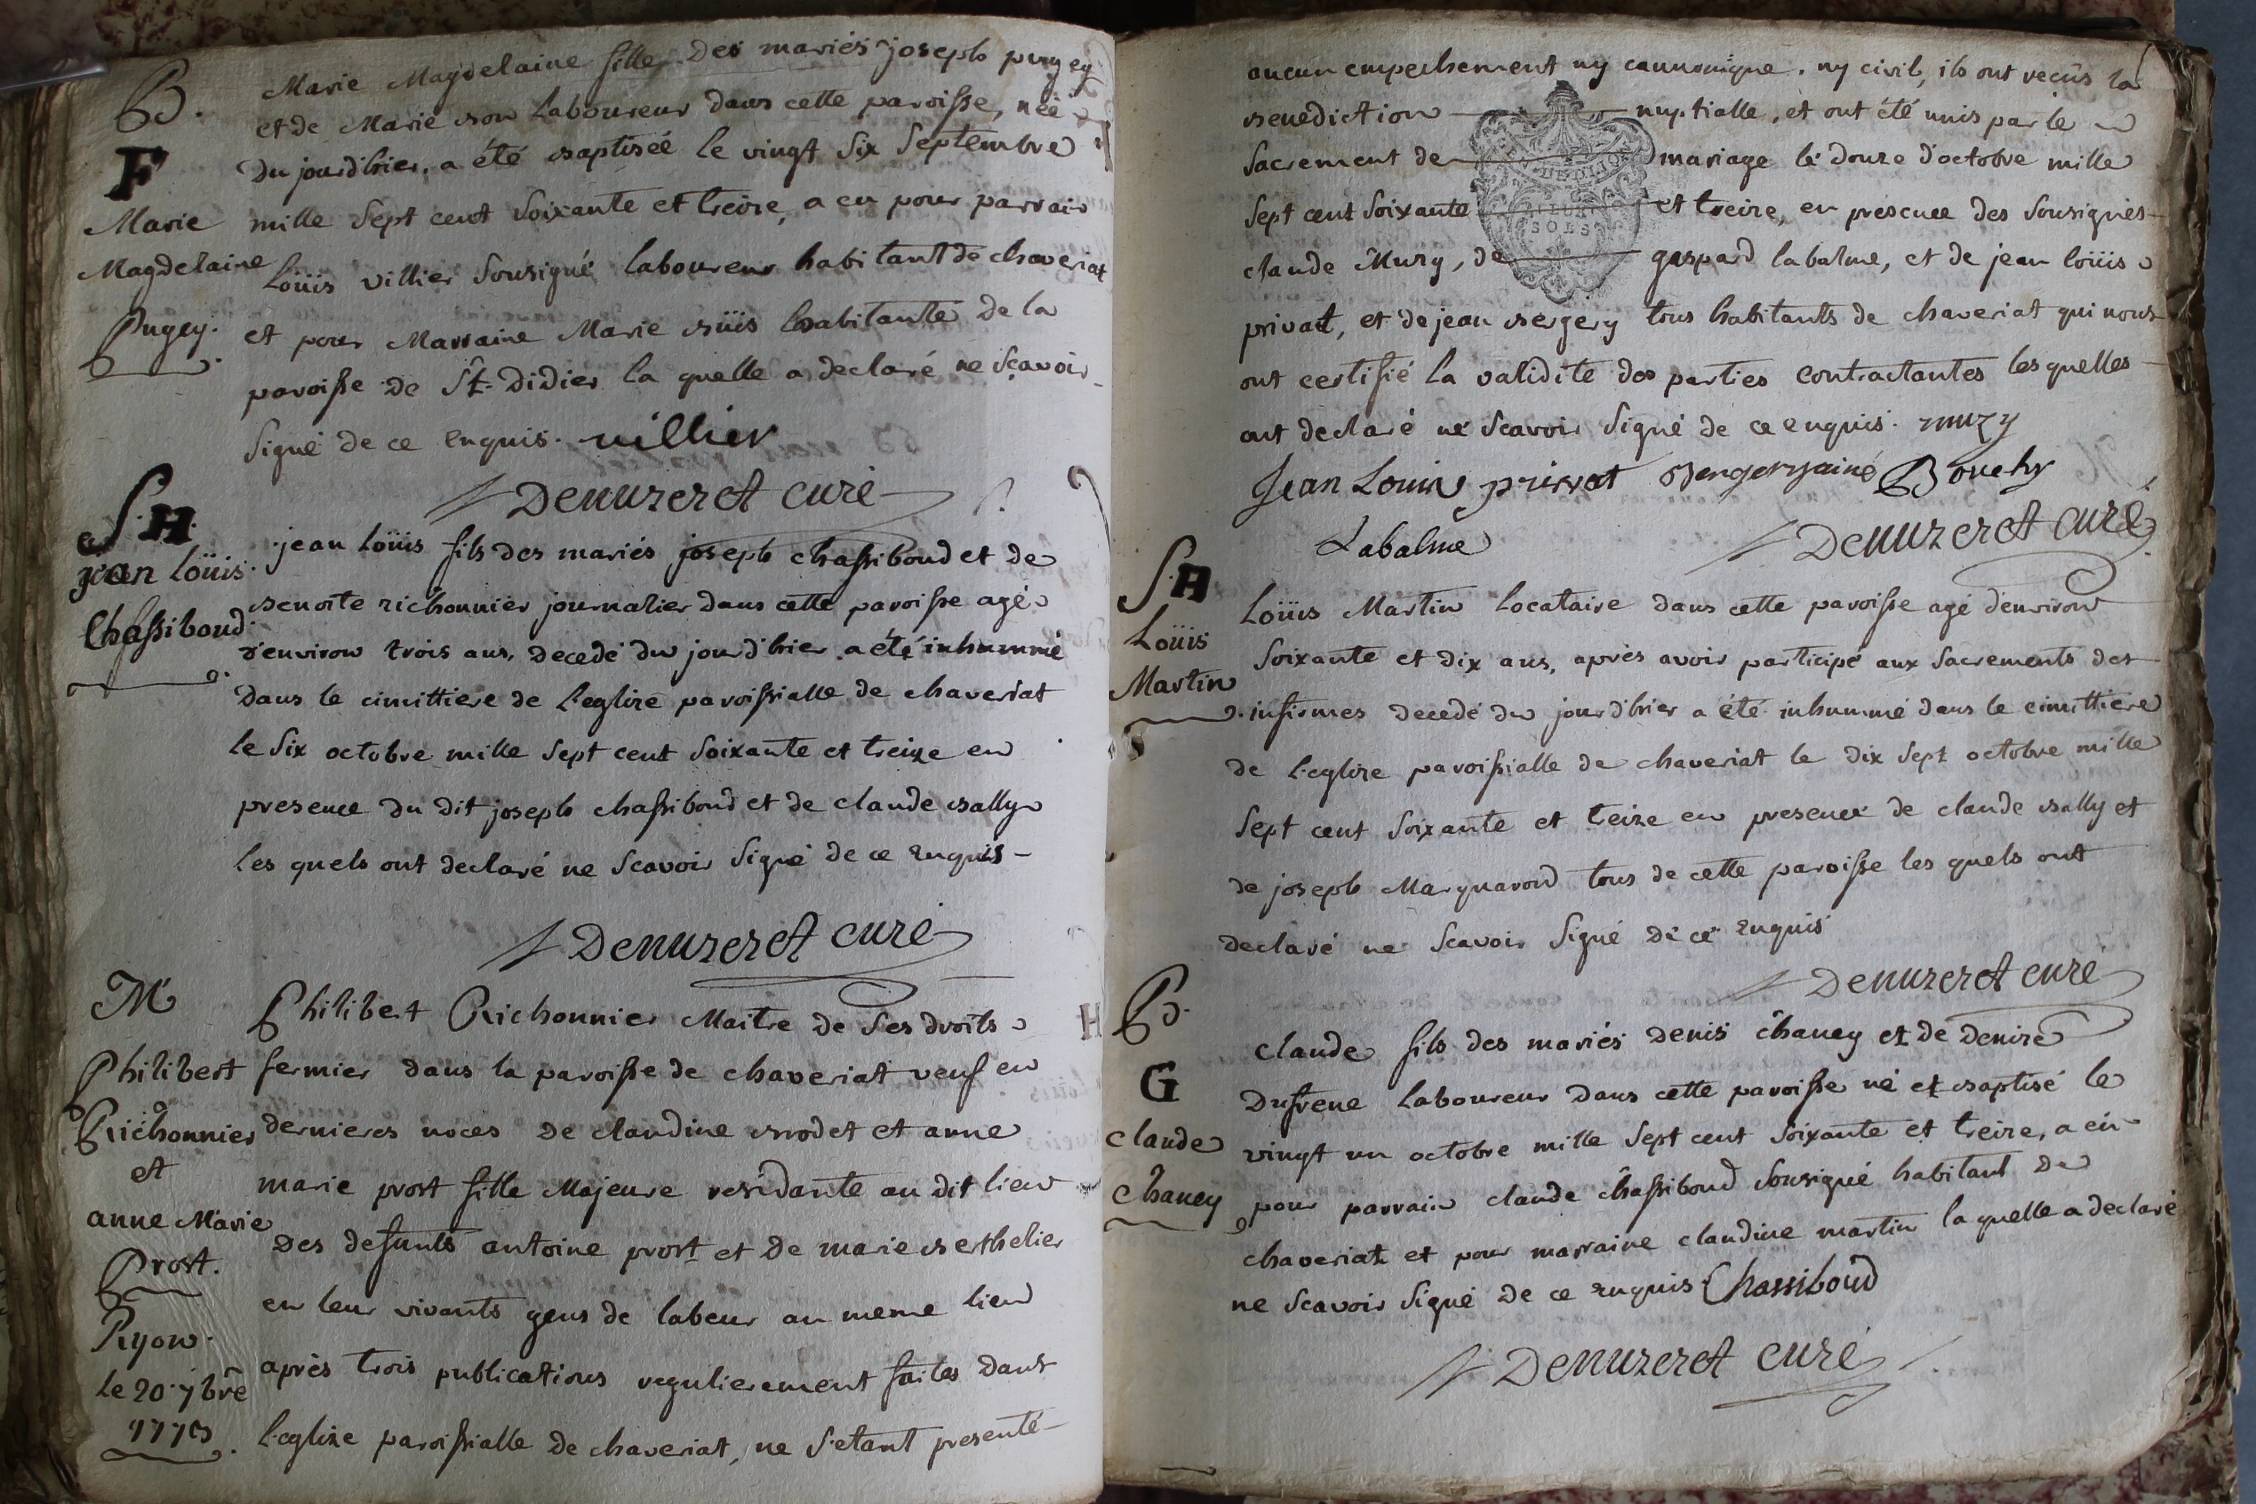 B.
F
Marie
Magdelaine
Pugey.
Marie Magdelaine fille des mariés joseph pugey
et de Marie bon Laboureur dans cette paroisse, née
du jourd'hier, a été baptiséé le vingt Six Septembre
mille Sept cent Soixante et treize, a eu pour parrain
Loüis villier Sousigné laboureur habitant de chaveriat
et pour Marraine Marie büis habitante de la
paroisse de St. Didier la quelle a declaré ne Sçavoir
Signé de ce enquis. villier
Denuzeret curé
S. H.
jean Loüis
Chassiboud
jean Loüis fils des mariés joseph chassiboud et de
benoite richonnier journalier dans cette paroisse agé
d'environ trois ans, decedé du jourd'hier a été inhummé
dans le cimittiere de L'eglize paroissialle de chaveriat
le Six octobre mille Sept cent Soixante et treize en
presence du dit joseph chassiboud et de claude bally
les quels ont declaré ne Scavoir Signé de ce enquis
Denuzeret curé
M
Philibert
Richonnier
et
anne Marie
Prost.
Ryon.
le 20. 7bre
1773.
Philibert Richonnier Maitre de Ses droits
fermier dans la paroisse de chaveriat veuf en
dernieres noces de claudine brodet et anne
marie prost fille Majeure residante au dit lieu
des defunts antoine prost et de marie berthelier
en leur vivants gens de labeur au meme lieu
après trois publications regulierement faites dans
L'eglize paroissialle de chaveriat, ne S'etant presenté
aucun empechement ny cannonique, ny civil, ils ont recüs la
benediction nuptialle, et ont été unis par le
Sacrement de mariage le douze d'octobre mille
Sept cent Soixante et treize, en presence des Sousignés
claude Muzy, de gaspard labalme, et de jean loüis
privat, et de jean bergery tous habitants de chaveriat qui nous
ont certifié la validite des parties contractantes les quelles
ont declaré ne Scavoir Signé de ce enquis. muzy
Jean Louis privat Bouchy
Labalme Denuzeret curé
S. H
Loüis
Martin
Loüis Martin Locataire dans cette paroisse agé d'environ
Soixante et dix ans, après avoir participé aux Sacrements des
infirmes decedé du jourd'hier a été inhummé dans le cimittiere
de L'eglize paroissialle de chaveriat le dix Sept octobre mille
Sept cent Soixante et treize en presence de claude bally et
de joseph Marguarond tous de cette paroisse les quels ont
declaré ne Scavoir Signé de ce enquis
Denuzeret curé
B.
G
claude
Chaney
claude fils des mariés Denis chaney et de Denize
Dufrene Laboureur dans cette paroisse né et baptisé le
vingt un octobre mille Sept cent Soixante et treize, a eü
pour parrain claude chassiboud Sousigné habitant de
chaveriat et pour marraine claudine martin la quelle a declaré
ne Scavoir Signé de ce enquis Chassiboud
Denuzeret curé